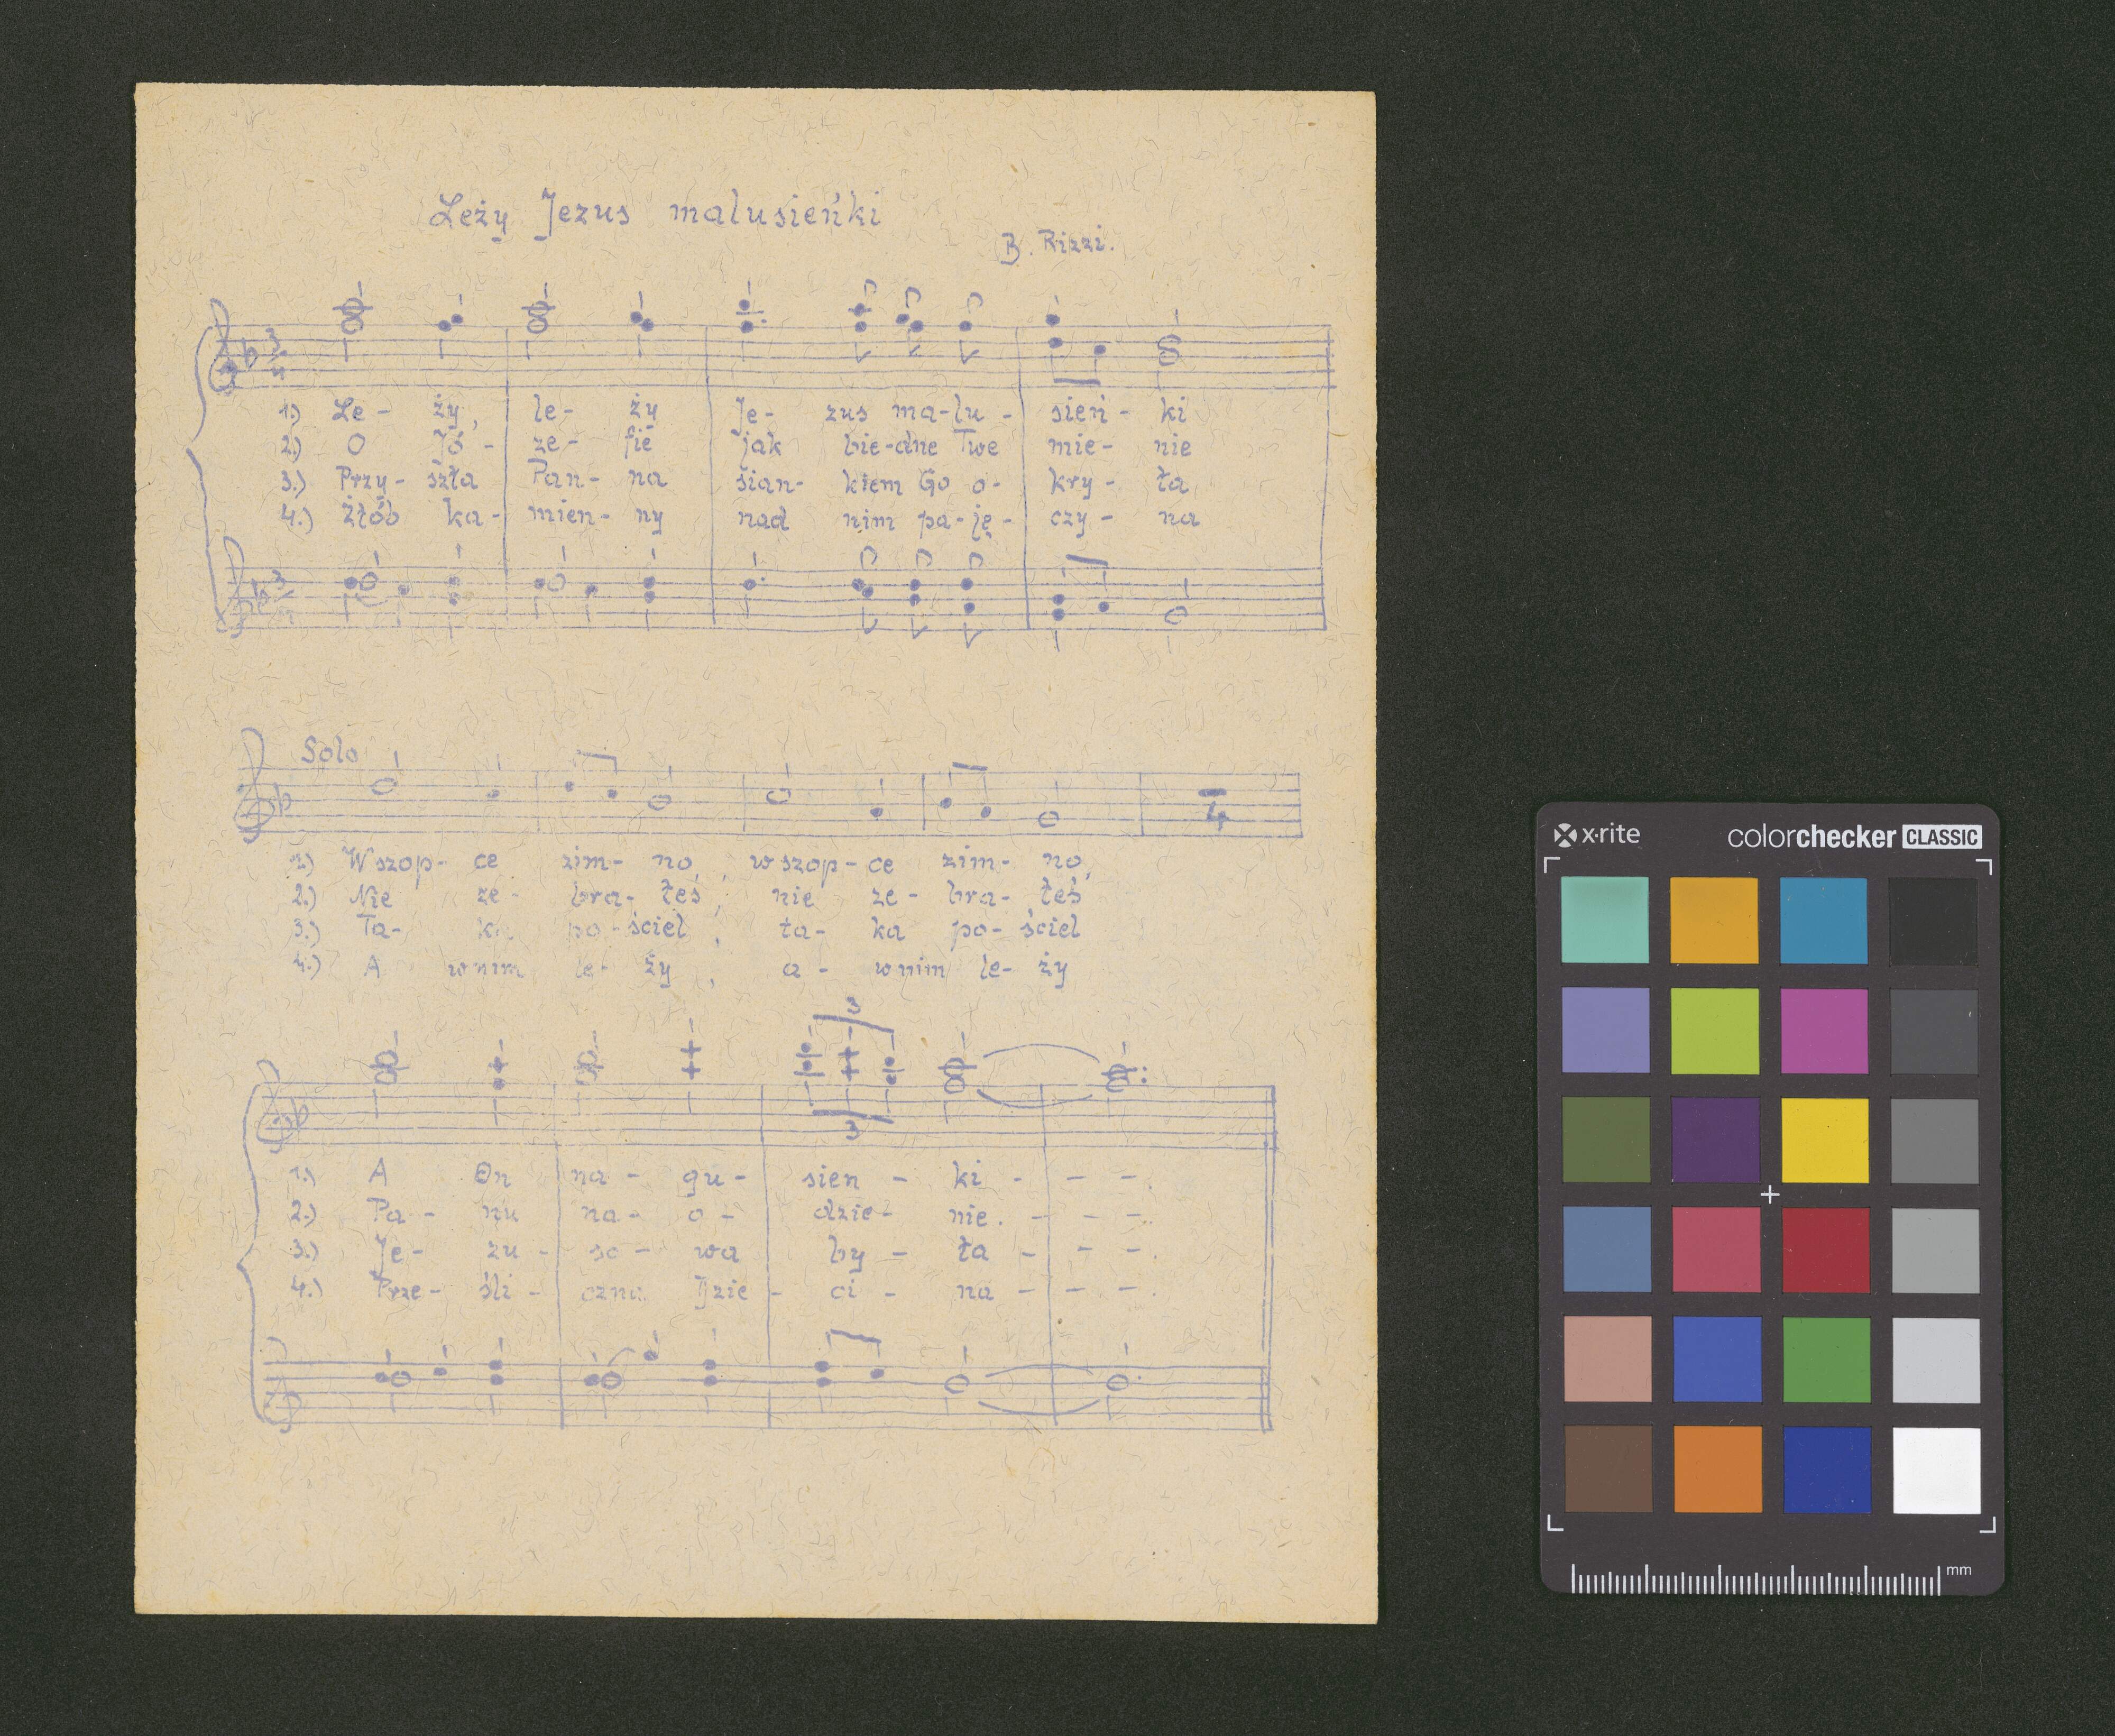 Leży Jezus malusieńki
B. Rizzi.
1.) Le- ży le- ży Je- zus ma-lu- sień- ki
2.) O Jó- ze- fie jak bie-dne Twe mie- nie
3.) Przy- szła Pan- na sian- kiem Go o- kry- ła
4.) Żłób ka- mien- ny nad nim pa-ję- czy- na
Solo
1.) W szop- ce zim- no, w szop- ce zim- no,
2.) Nie ze- bra- łeś, nie ze- bra- łeś
3.) Ta- ka po-ściel, ta- ka po- ściel
4.) A w nim le- ży, a- w nim le- ży
3
3
1.) A On na- gu- sien- ki - - -.
2.) Pa- nu na- o- dzie- nie. - - -.
3.) Je- zu- so- wa by- ła - - -.
4.) Prze- śli- czna Dzie- ci- na - - -.
x·rite colorchecker CLASSIC
mm